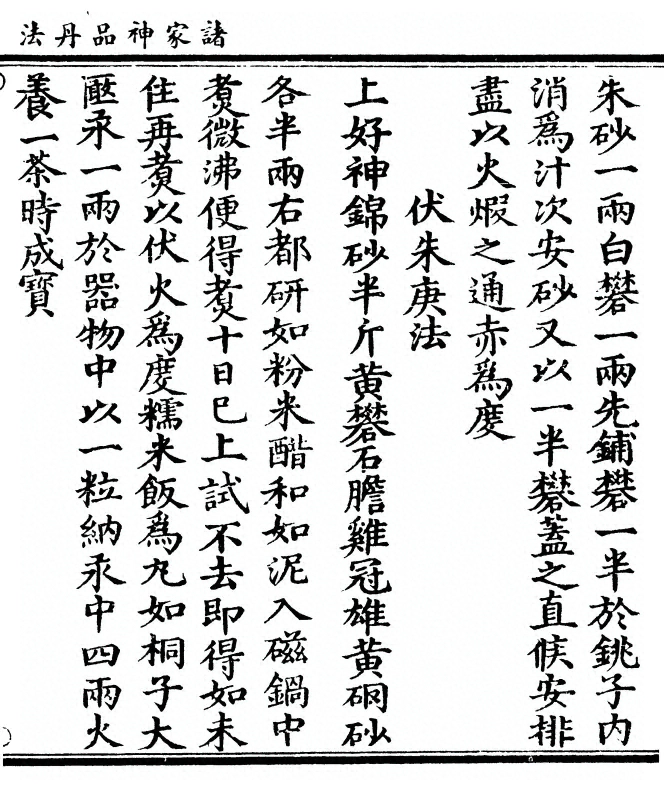 諸家神品丹法
朱砂一兩白礬一兩先鋪礬一半於銚子內
消爲汁次安砂又以一半礬蓋之直候安排
盡以火煆之通赤爲度
伏朱庚法
上好神錦砂半斤黃礬石膽雞冠雄黃硇砂
各半兩右都研如粉米醋和如泥入磁鍋中
煑微沸便得煑十日已上試不去即得如未
住再煑以伏火爲度糯米飯爲丸如桐子大
匭汞一兩於器物中以一粒納汞中四兩火
養一茶時成寶